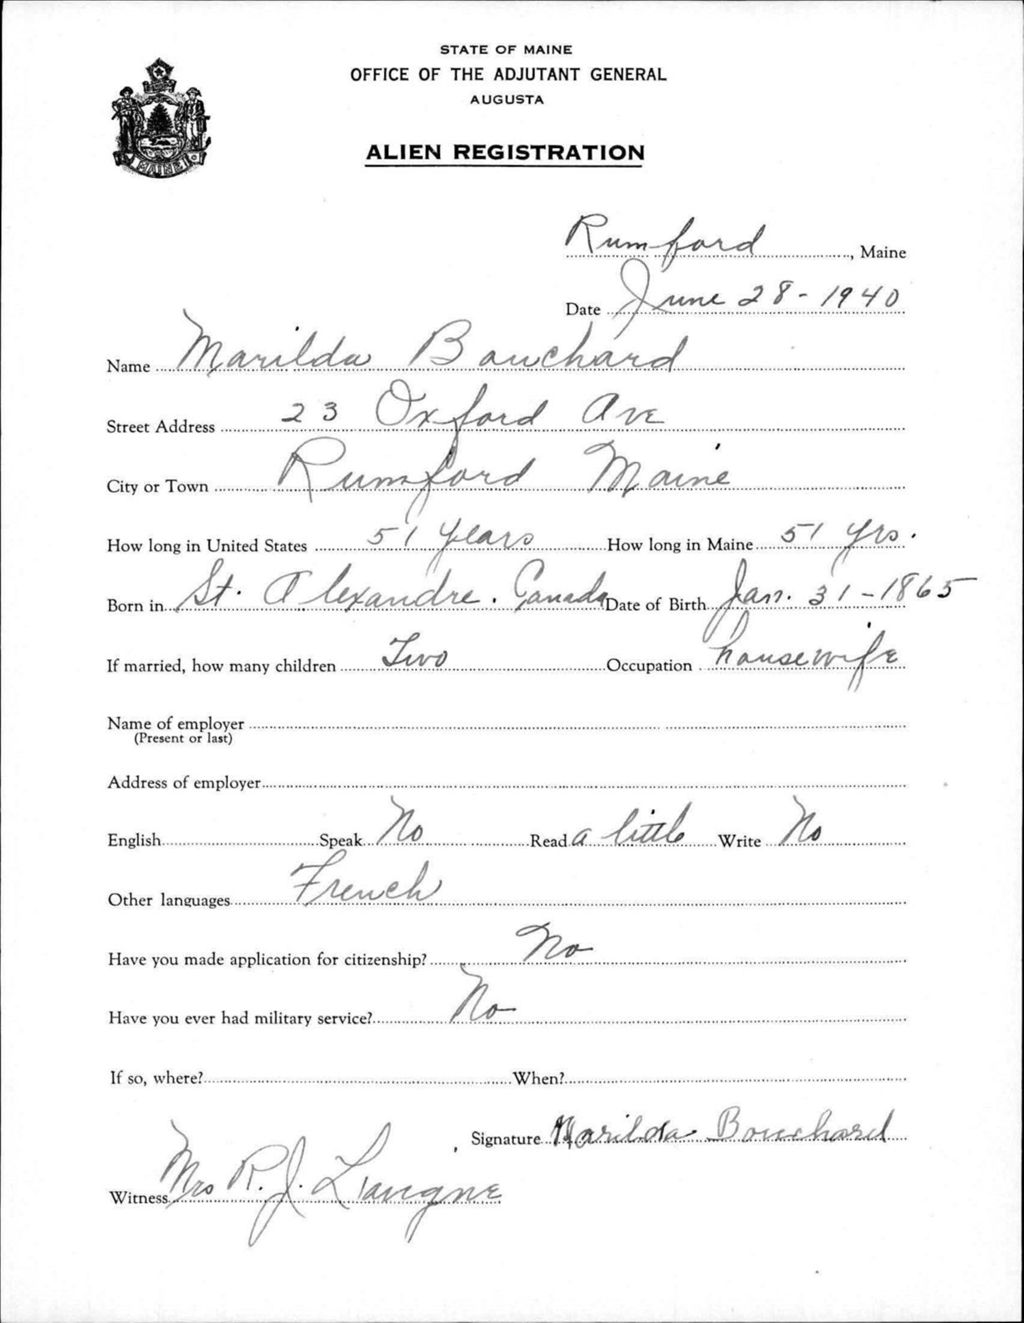 STATE OF MAINE
OFFICE OF THE ADJUTANT GENERAL
AUGUSTA
ALIEN REGISTRATION
MAINE
Rumford, Maine
Date June 28-1940
Name Marilda Bouchard
Street Address 23 Oxford Ave
City or Town Rumford Maine
How long in United States 51 years How long in Maine 51 yrs.
Born in St. Alexandre. Canada Date of Birth Jan. 31-1865
If married, how many children Two Occupation housewife
Name of employer
(Present or last)
Address of employer
English Speak No Read a little Write No
Other languages French
Have you made application for citizenship? No
Have you ever had military service? No
If so, where? When?
Signature Marilda Bouchard
Witness Mrs R. J.